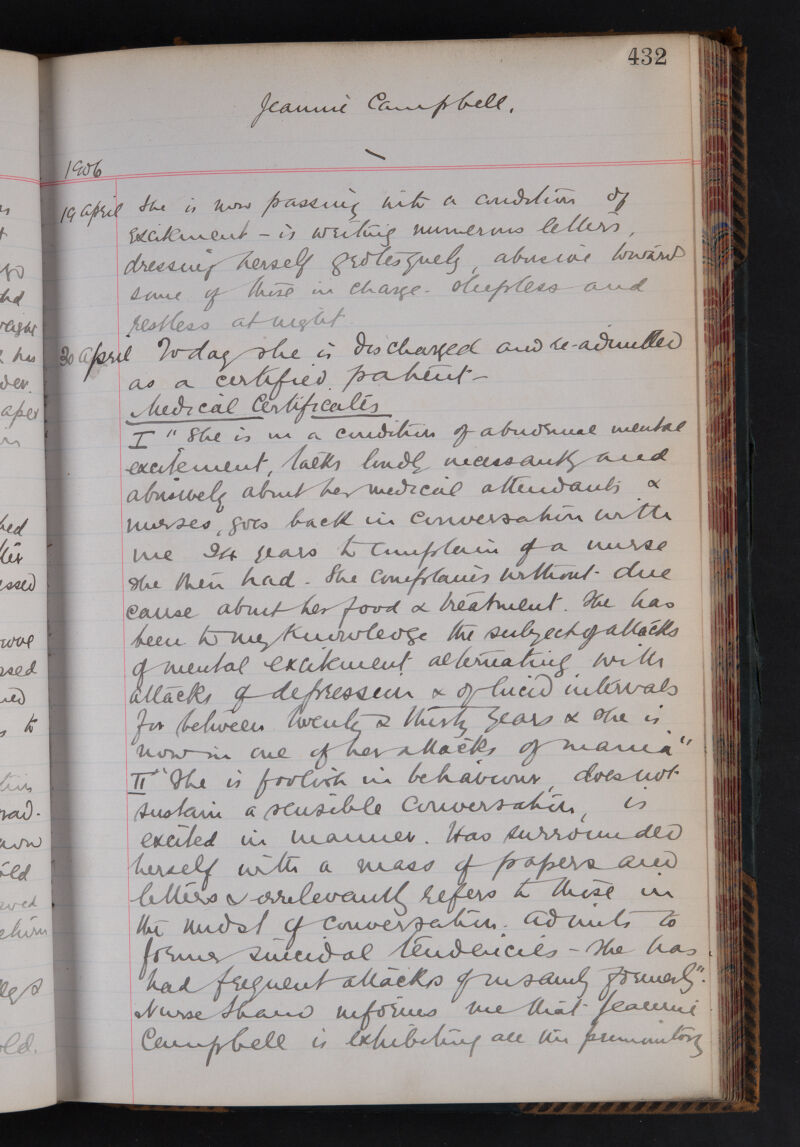 432
Jeannie Campbell.
1906
19 April She is now passing into a condition of
excitement – is writing numerous letters,
dressing herself grotesquely, abusive toward
some of those in charge. Sleepless and
restless at night.
30 April Today she is discharged and re-admitted
as a certified patient –
Medical Certificates
I "She is in a condition of abnormal mental
excitement, talks loudly incessantly and
abusively about her medical attendants &
nurses, goes back in conversation with
me 24 years to complain of a nurse
she then had. She complains without due
cause about her food & treatment. She has
been to my knowledge the subject of attacks
of mental excitement alternating with
attacks of depression & of lucid intervals
for between twenty & thirty years & she is
now in one of her attacks of mania"
II "She is foolish in behaviour, does not
sustain a sensible conversation, is
excited in manner. Has surrounded
herself with a mass of papers and
letters & irrelevantly refers to those in
the midst of conversation. Admits to
former suicidal tendencies – She has
had frequent attacks of insanity formerly".
Nurse Shaw informs me that Jeannie
Campbell is exhibiting all the premonitory